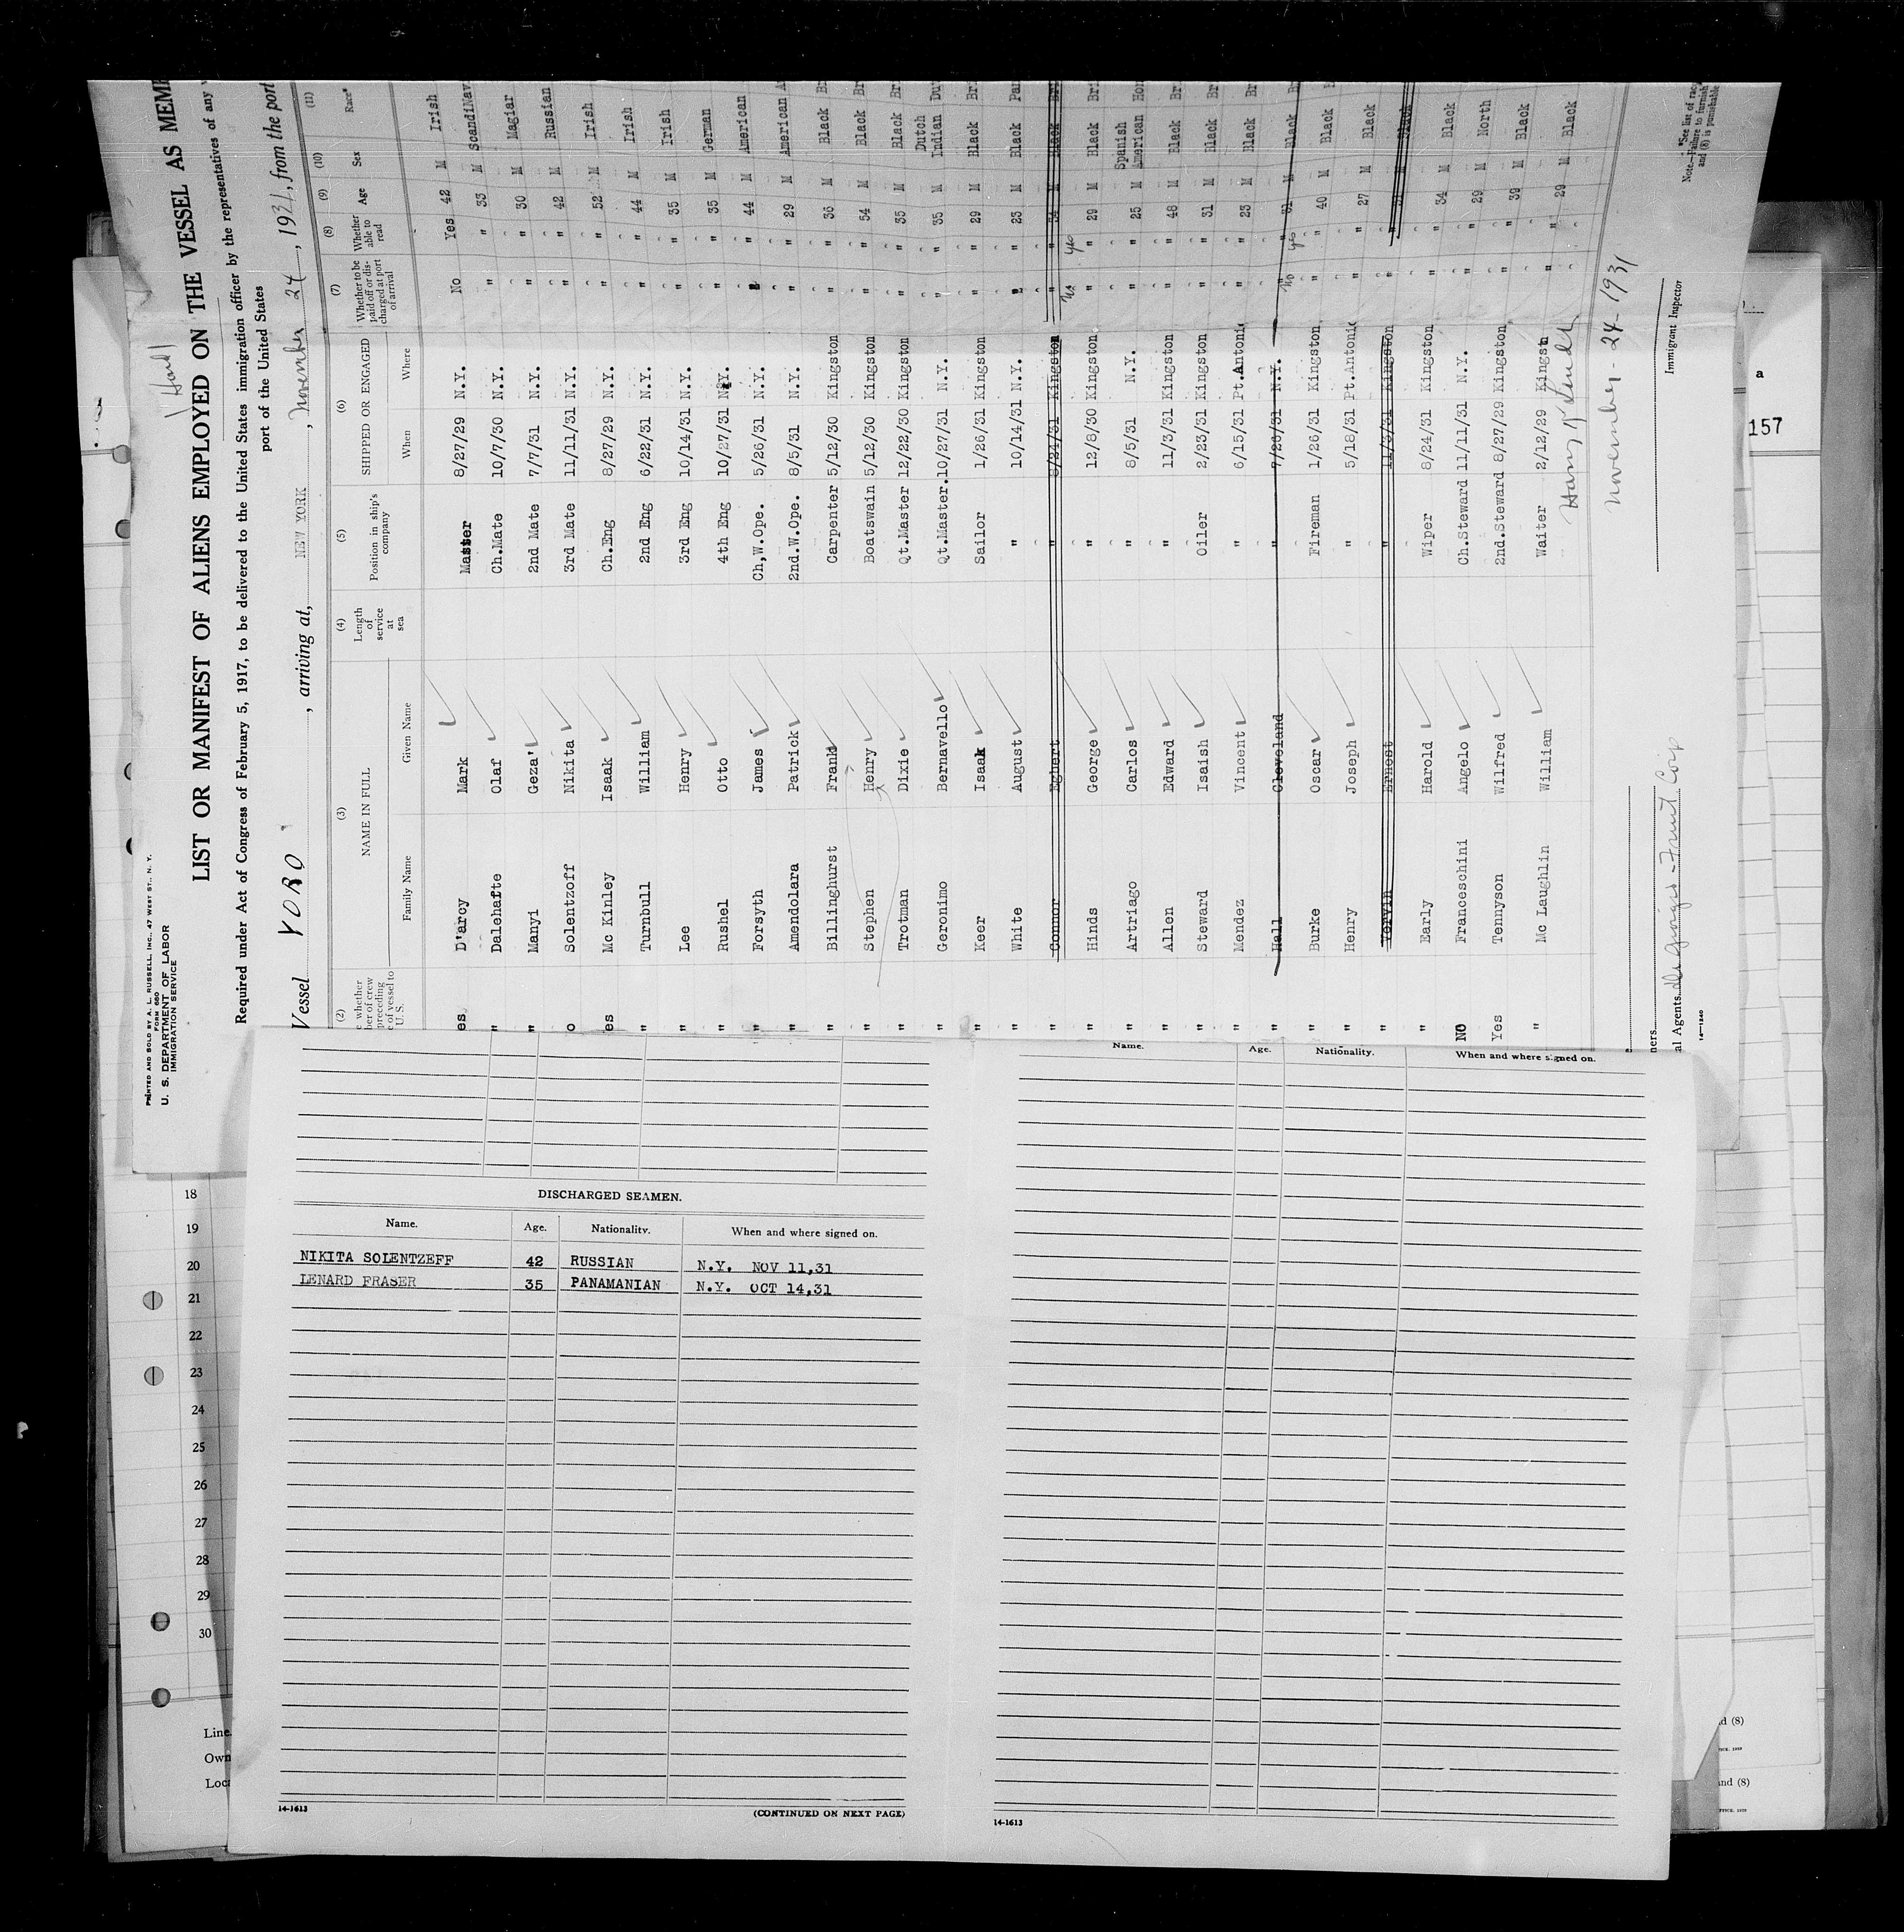 PRINTED AND SOLD BY A. L. RUSSELL, INC., 47 WEST ST., N. Y.
FORM 680
U. S. DEPARTMENT OF LABOR
IMMIGRATION SERVICE
LIST OR MANIFEST OF ALIENS EMPLOYED ON THE VESSEL AS MEMB
Required under Act of Congress of February 5, 1917, to be delivered to the United States immigration officer by the representatives of any
port of the United States
Vessel YORO, arriving at, NEW YORK, November 24, 1931, from the port
(2) (3) (4) (5) (6) (7) (8) (9) (10) (11)
NAME IN FULL
Family Name Given Name
Length of service at sea
Position in ship's company
SHIPPED OR ENGAGED
When Where
Whether to be paid off or discharged at port of arrival
Whether able to read
Age Sex Race*
es D'arcy Mark Master 8/27/29 N.Y. No Yes 42 M Irish
" Dalehafte Olaf Ch.Mate 10/7/30 N.Y. " " 33 M ScandiNav
" Manyi Geza' 2nd Mate 7/7/31 N.Y. " " 30 M Magiar
o Solentzoff Nikita 3rd Mate 11/11/31 N.Y. " " 42 M Russian
es Mc Kinley Isaak Ch.Eng 8/27/29 N.Y. " " 52 M Irish
" Turnbull William 2nd Eng 6/22/31 N.Y. " " 44 M Irish
" Lee Henry 3rd Eng 10/14/31 N.Y. " " 35 M Irish
" Rushel Otto 4th Eng 10/27/31 N.Y. " " 35 M German
" Forsyth James Ch,W.Ope. 5/26/31 N.Y. " " 44 M American
" Amendolara Patrick 2nd.W.Ope. 8/5/31 N.Y. " " 29 M American
" Billinghurst Frank Carpenter 5/12/30 Kingston " " 36 M Black Br
" Stephen Henry Boatswain 5/12/30 Kingston " " 54 M Black Br
" Trotman Dixie Qt.Master 12/22/30 Kingston " " 35 M Black Br
" Geronimo Bernavello Qt.Master. 10/27/31 N.Y. " " 35 M Dutch Indian Du
" Keer Isaak Sailor 1/26/31 Kingston " " 29 M Black Br
" White August " 10/14/31 N.Y. " " 23 M Black Pa
" Connor Egbert " 8/24/31 Kingston " " M Black
" Hinds George " 12/8/30 Kingston " " 29 M Black Bri
" Artriago Carlos " 8/5/31 N.Y. " " 25 M Spanish American Hon
" Allen Edward " 11/3/31 Kingston " " 48 M Black Br
" Steward Isaish Oiler 2/23/31 Kingston " " 31 M Black Br
" Mendez Vincent " 6/15/31 Pt.Antoni " " 23 M Black Br
" Hall Cleveland " 7/26/31 N.Y. " " 31 M Black
" Burke Oscar Fireman 1/26/31 Kingston " " 40 M Black
" Henry Joseph " 5/18/31 Pt.Antoni " " 27 M Black
" Ernest " 11/3/31 Kingston " M Black
" Early Harold Wiper 8/24/31 Kingston " " 34 M Black
NO Franceschini Angelo Ch.Steward 11/11/31 N.Y. " " 29 M North
Yes Tennyson Wilfred 2nd.Steward 8/27/29 Kingston " " 39 M Black
" Mc Laughlin William Waiter 2/12/29 Kingst " " 29 M Black
November-24-1931
Immigrant Inspector
al Agents Di Giorgio Fruit Corp
14—1240
*See list of rac
Note.—Failure to furnish
and (8) is punishable
157
a
Name. Age. Nationality. When and where signed on.
DISCHARGED SEAMEN.
Name. Age. Nationality. When and where signed on.
NIKITA SOLENTZEFF 42 RUSSIAN N.Y. NOV 11,31
LENARD FRASER 35 PANAMANIAN N.Y. OCT 14,31
18
19
20
21
22
23
24
25
26
27
28
29
30
Line
Own
Loca
14-1613
(CONTINUED ON NEXT PAGE)
14-1613
d (8)
and (8)